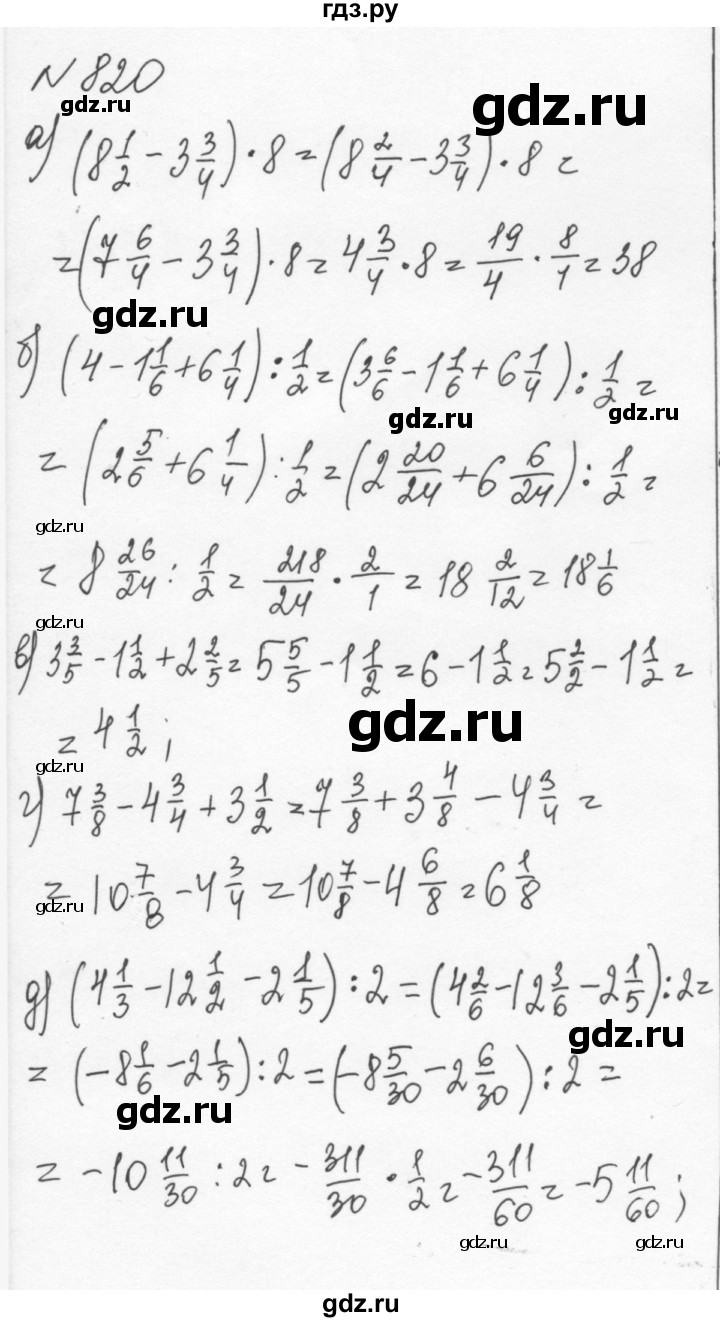 гдз.ру
№ 820
gdz.ru
gdz.ru
а) (8 1/2 - 3 3/4) · 8 = (8 2/4 - 3 3/4) · 8 =
= (7 6/4 - 3 3/4) · 8 = 4 3/4 · 8 = 19/4 · 8/1 = 38
gdz.ru
б) (4 - 1 1/6 + 6 1/4) : 1/2 = (3 6/6 - 1 1/6 + 6 1/4) : 1/2 =
gdz.ru
gdz.ru
= (2 5/6 + 6 1/4) : 1/2 = (2 20/24 + 6 6/24) : 1/2 =
gdz.ru
= 8 26/24 : 1/2 = 218/24 · 2/1 = 18 2/12 = 18 1/6
gdz.ru
в) 3 3/5 - 1 1/2 + 2 2/5 = 5 5/5 - 1 1/2 = 6 - 1 1/2 = 5 2/2 - 1 1/2 =
gdz.ru
= 4 1/2 ;
gdz.ru
г) 7 3/8 - 4 3/4 + 3 1/2 = 7 3/8 + 3 4/8 - 4 3/4 =
= 10 7/8 - 4 3/4 = 10 7/8 - 4 6/8 = 6 1/8
gdz.ru
д) (4 1/3 - 12 1/2 - 2 1/5) : 2 = (4 2/6 - 12 3/6 - 2 1/5) : 2 =
gdz.ru
= (-8 1/6 - 2 1/5) : 2 = (-8 5/30 - 2 6/30) : 2 =
gdz.ru
= -10 11/30 : 2 = - 311/30 · 1/2 = - 311/60 = -5 11/60 ;
gdz.ru
gdz.ru
gdz.ru